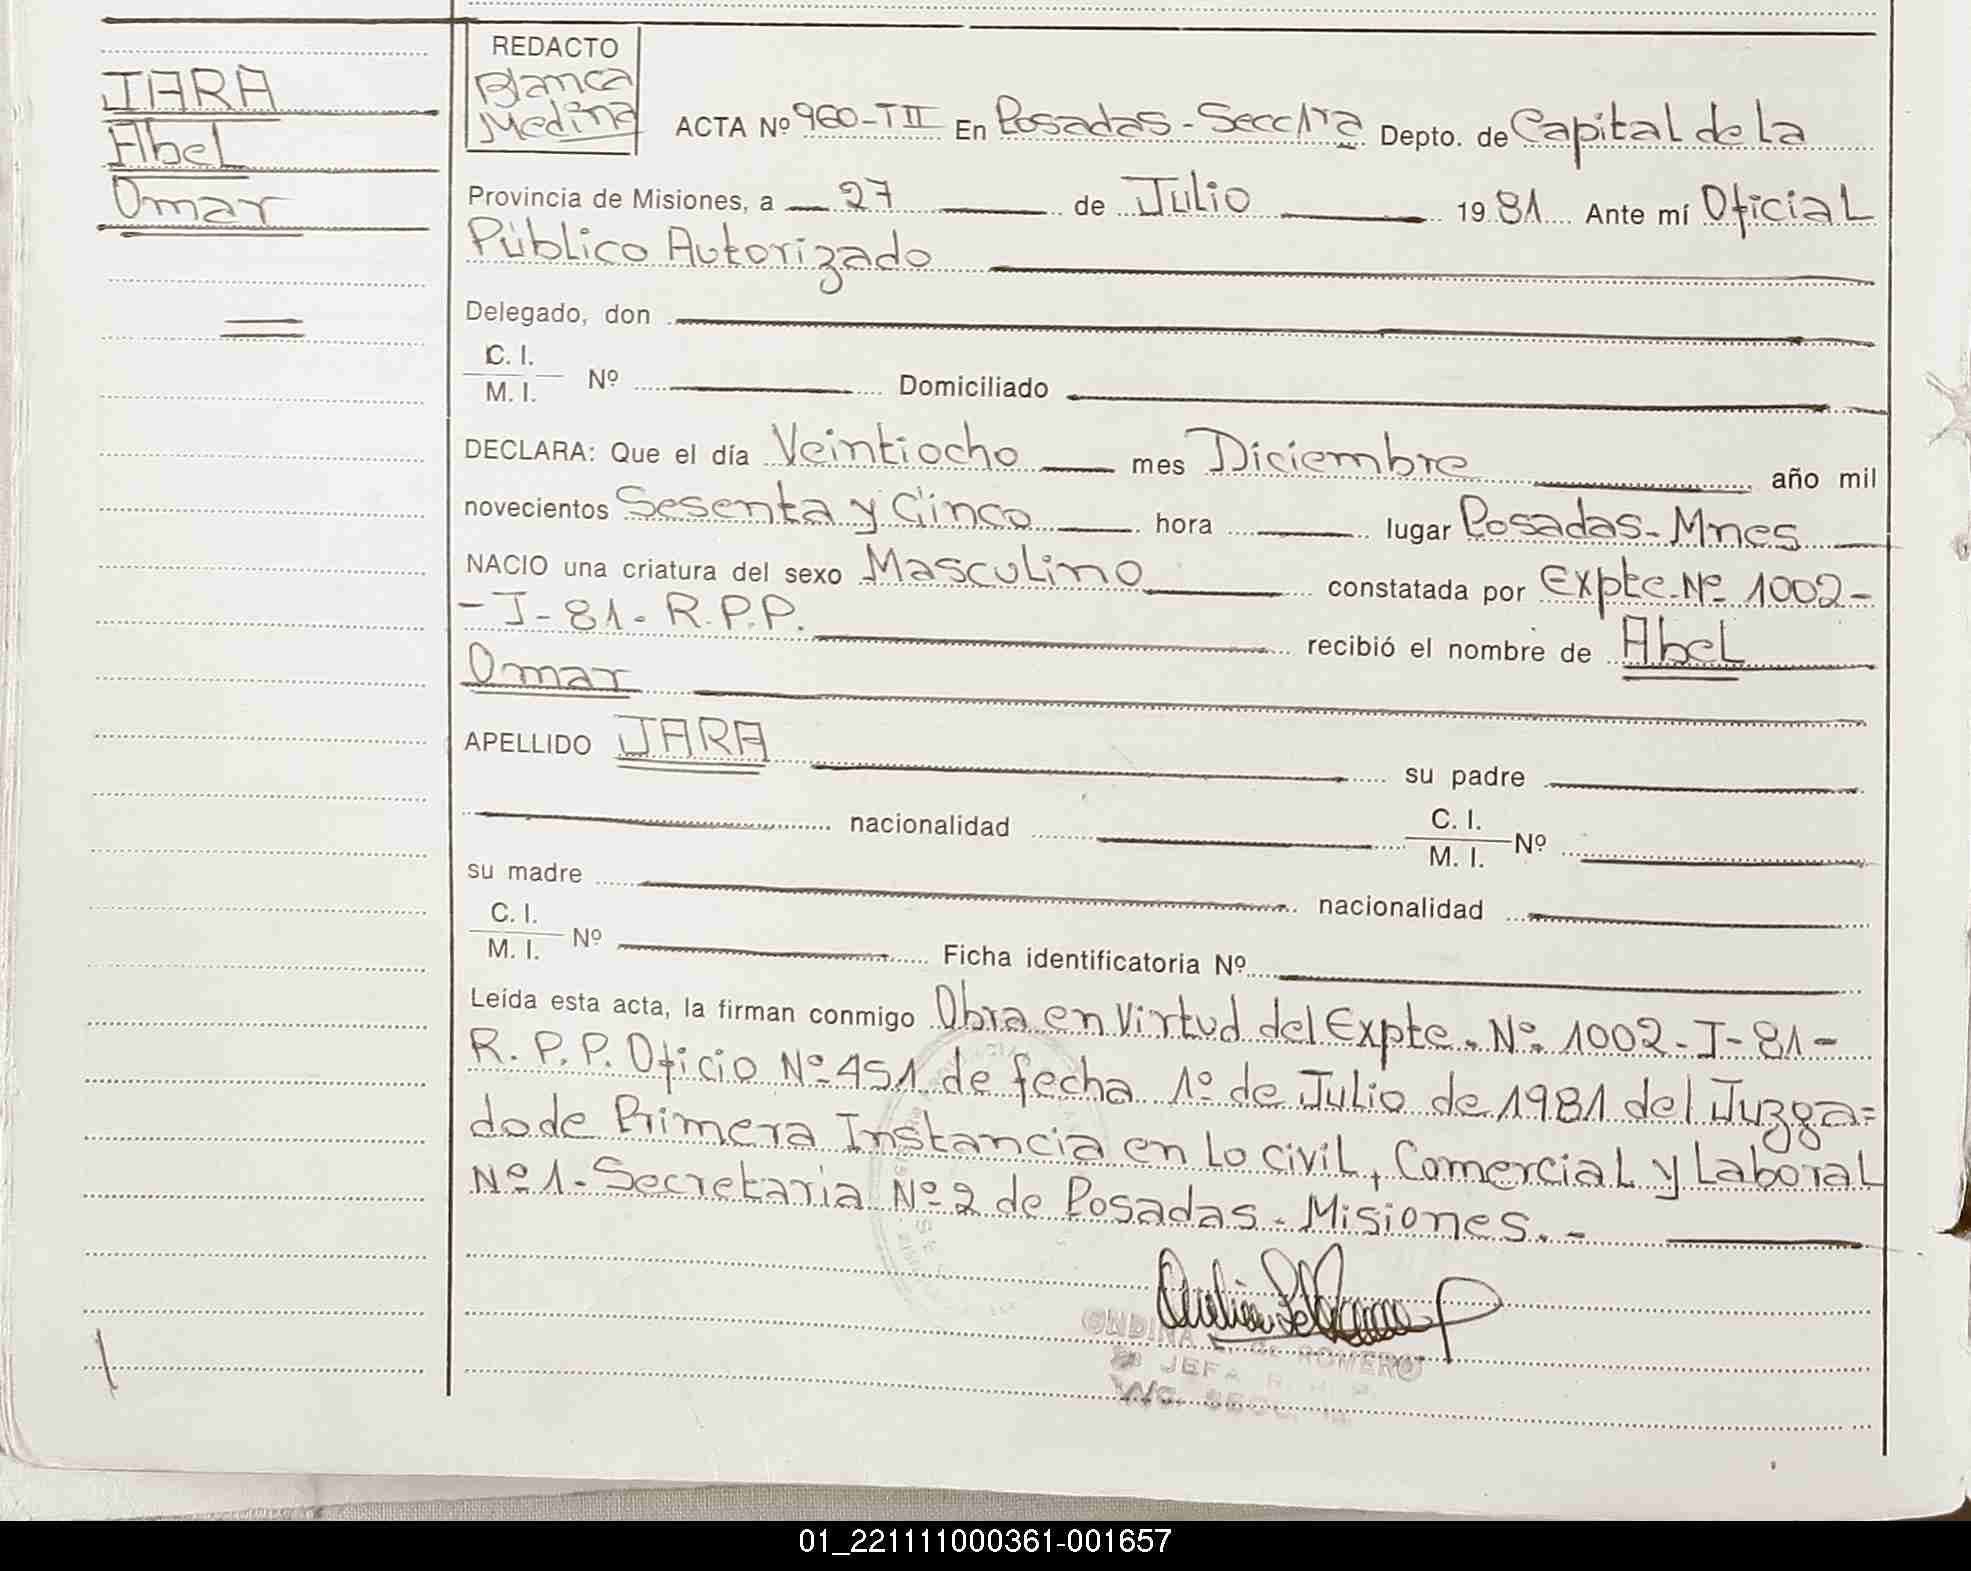 JARA
Abel
Omar
REDACTO
Blanca
Medina
ACTA Nº 960-TII En Posadas-Secc 1ra Depto. de Capital de La
Provincia de Misiones, a 27 de Julio 1981 Ante mí Oficial
Público Autorizado
Delegado, don
C. I.
M. I. Nº Domiciliado
DECLARA: Que el día Veintiocho mes Diciembre año mil
novecientos Sesenta y Cinco hora lugar Posadas-Mnes
NACIO una criatura del sexo Masculino constatada por Expte.Nº 1002-
-J-81-R.P.P. recibió el nombre de Abel
Omar
APELLIDO JARA su padre
nacionalidad C. I.
M. I. Nº
su madre nacionalidad
C. I.
M. I. Nº Ficha identificatoria Nº
Leída esta acta, la firman conmigo Obra en Virtud del Expte. Nº 1002-J-81-
R.P.P. Oficio Nº 451 de fecha 1º de Julio de 1981 del Juzga=
do de Primera Instancia en Lo civil, Comercial y Laboral
Nº 1-Secretaria Nº 2 de Posadas-Misiones.-
ONDINA de ROMERO
JEFA
01_221111000361-001657